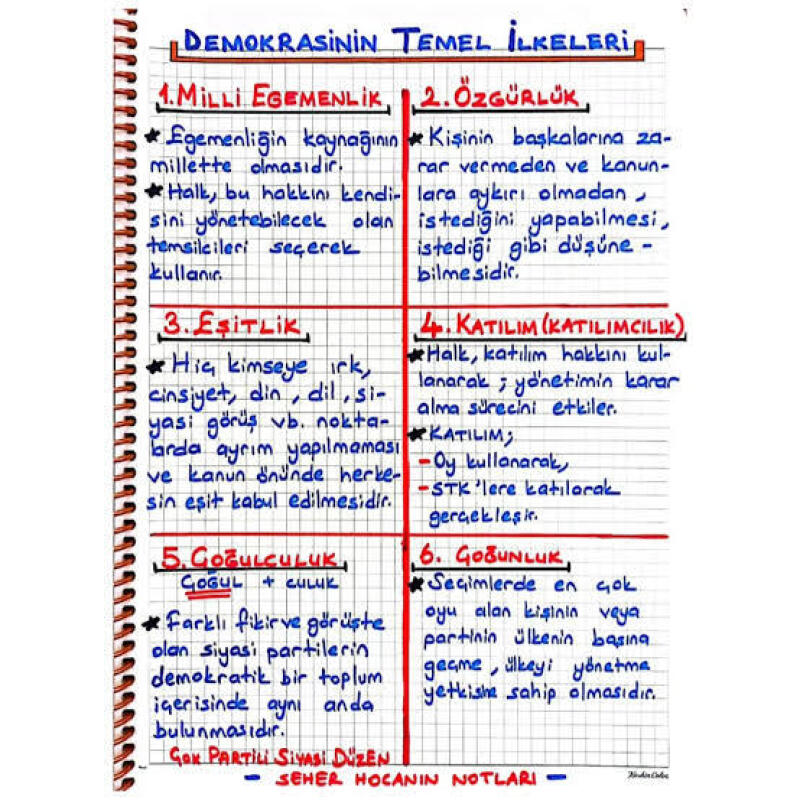 DEMOKRASİNİN TEMEL İLKELERİ
1. MİLLİ EGEMENLİK
★ Egemenliğin kaynağının
millette olmasıdır.
★ Halk, bu hakkını kendi-
sini yönetebilecek olan
temsilcileri seçerek
kullanır.
2. ÖZGÜRLÜK
★ Kişinin başkalarına za-
rar vermeden ve kanun-
lara aykırı olmadan,
istediğini yapabilmesi,
istediği gibi düşüne-
bilmesidir.
3. EŞİTLİK
★ Hiç kimseye ırk,
cinsiyet, din, dil, si-
yasi görüş vb. nokta-
larda ayrım yapılmaması
ve kanun önünde herke-
sin eşit kabul edilmesidir.
4. KATILIM (KATILIMCILIK)
★ Halk, katılım hakkını kul-
lanarak; yönetimin karar
alma sürecini etkiler.
★ KATILIM;
- Oy kullanarak,
- STK'lere katılarak
gerçekleşir.
5. ÇOĞULCULUK
ÇOĞUL + CULUK
★ Farklı fikir ve görüşte
olan siyasi partilerin
demokratik bir toplum
içerisinde aynı anda
bulunmasıdır.
ÇOK PARTİLİ SİYASİ DÜZEN
6. ÇOĞUNLUK
★ Seçimlerde en çok
oyu alan kişinin veya
partinin ülkenin başına
geçme, ülkeyi yönetme
yetkisine sahip olmasıdır.
- SEHER HOCANIN NOTLARI -